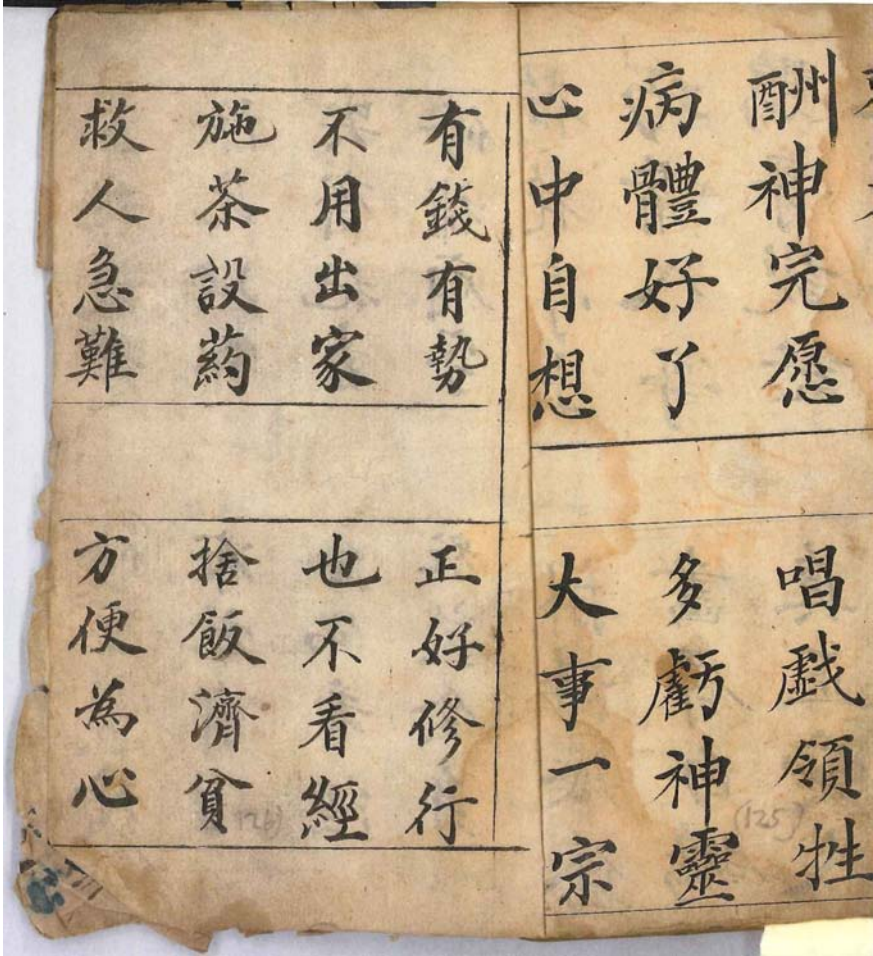 酬神完愿 唱戯領牲
病體好了 多虧神靈
心中自想 大事一宗
(125)
有錢有勢 正好修行
不用出家 也不看經
施茶設葯 捨飯濟貧
救人急難 方便為心
(126)